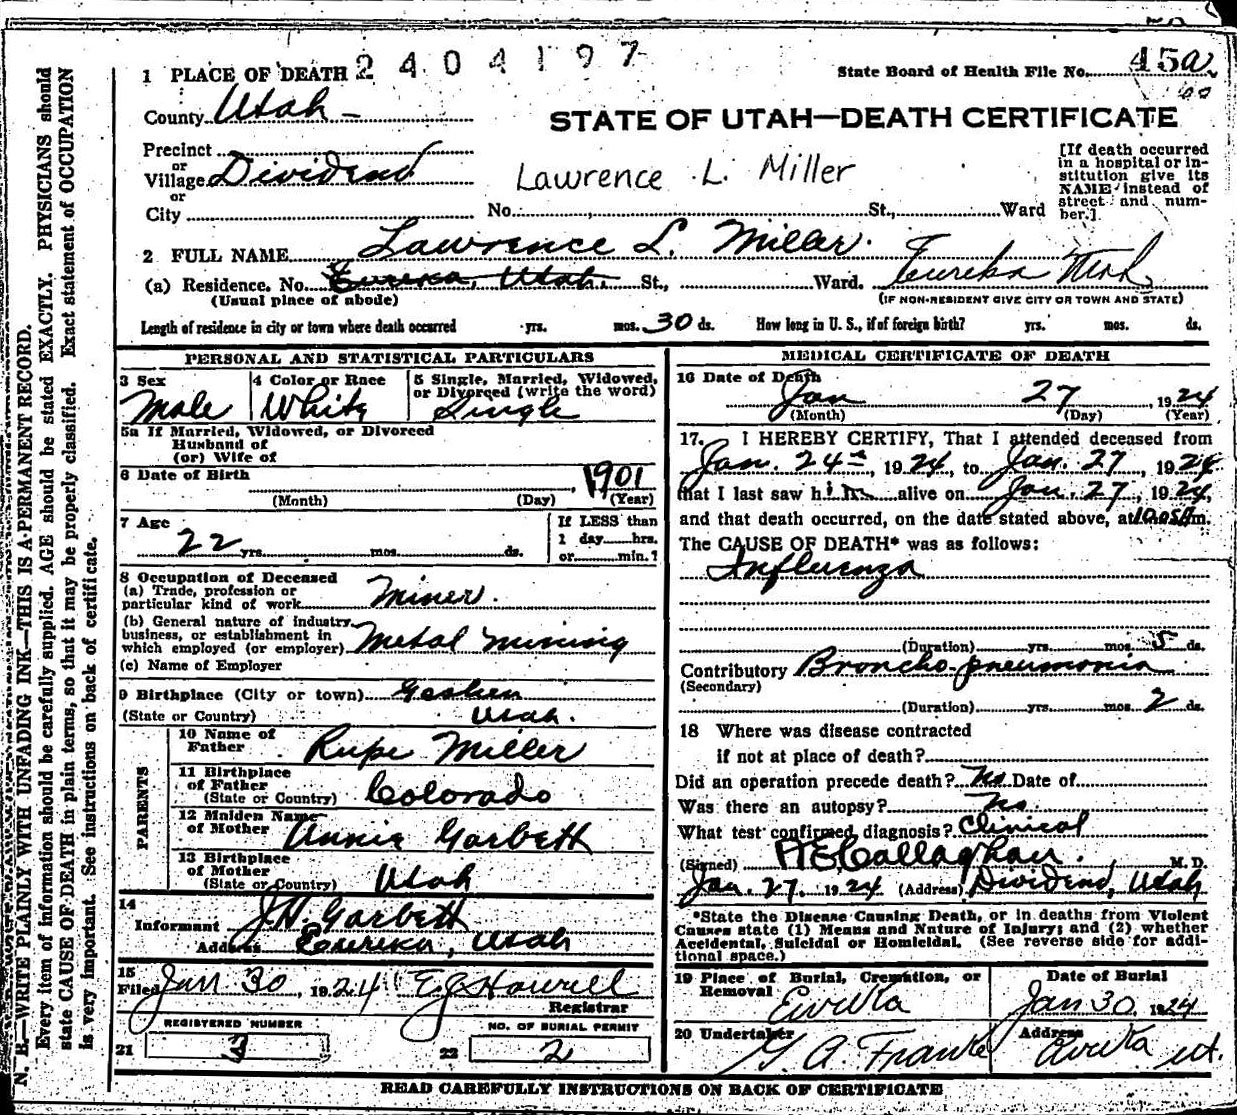 2404197
1 PLACE OF DEATH
State Board of Health File No. 45a
County Utah
STATE OF UTAH—DEATH CERTIFICATE
Precinct
or
Village Dividend
or
City
Lawrence L. Miller
No. St., Ward
[If death occurred
in a hospital or in-
stitution give its
NAME instead of
street and num-
ber.]
2 FULL NAME Lawrence L. Miller.
(a) Residence. No. Eureka, Utah. St., Ward. Eureka Utah
(Usual place of abode)
(IF NON-RESIDENT GIVE CITY OR TOWN AND STATE)
Length of residence in city or town where death occurred yrs. mos. 30 ds. How long in U. S., if of foreign birth? yrs. mos. ds.
PERSONAL AND STATISTICAL PARTICULARS
3 Sex
Male
4 Color or Race
White
5 Single, Married, Widowed,
or Divorced (write the word)
Single
5a If Married, Widowed, or Divorced
Husband of
(or) Wife of
6 Date of Birth
1901
(Month) (Day) (Year)
7 Age
22 yrs. mos. ds.
If LESS than
1 day hrs.
or min.?
8 Occupation of Deceased
(a) Trade, profession or
particular kind of work Miner.
(b) General nature of industry,
business, or establishment in
which employed (or employer) Metal Mining
(c) Name of Employer
9 Birthplace (City or town) Goshen
(State or Country) Utah.
PARENTS
10 Name of
Father Rupe Miller
11 Birthplace
of Father
(State or Country) Colorado
12 Maiden Name
of Mother Annie Garbett
13 Birthplace
of Mother
(State or Country) Utah
14
Informant J.H. Garbett
Address Eureka, Utah
15
Filed Jan 30, 1924 E.J. Howell
Registrar
REGISTERED NUMBER
21 3
NO. OF BURIAL PERMIT
22 2
MEDICAL CERTIFICATE OF DEATH
16 Date of Death
Jan 27 1924
(Month) (Day) (Year)
17. I HEREBY CERTIFY, That I attended deceased from
Jan. 24th, 1924, to Jan. 27, 1924
that I last saw him alive on Jan. 27, 1924,
and that death occurred, on the date stated above, at 10:05 A m.
The CAUSE OF DEATH* was as follows:
Influenza
(Duration) yrs. mos. 5 ds.
Contributory Broncho-pneumonia
(Secondary)
(Duration) yrs. mos. 2 ds.
18 Where was disease contracted
if not at place of death?
Did an operation precede death? No Date of
Was there an autopsy? No
What test confirmed diagnosis? Clinical
(Signed) Callaghan, M. D.
Jan. 27, 1924 (Address) Dividend, Utah
*State the Disease Causing Death, or in deaths from Violent
Causes state (1) Means and Nature of Injury; and (2) whether
Accidental, Suicidal or Homicidal. (See reverse side for addi-
tional space.)
19 Place of Burial, Cremation, or
Removal Eureka
Date of Burial
Jan 30 1924
20 Undertaker
G. A. Franke
Address
Eureka ut.
READ CAREFULLY INSTRUCTIONS ON BACK OF CERTIFICATE
N. B.—WRITE PLAINLY WITH UNFADING INK—THIS IS A PERMANENT RECORD.
Every item of information should be carefully supplied. AGE should be stated EXACTLY. PHYSICIANS should
state CAUSE OF DEATH in plain terms, so that it may be properly classified. Exact statement of OCCUPATION
is very important. See instructions on back of certificate.